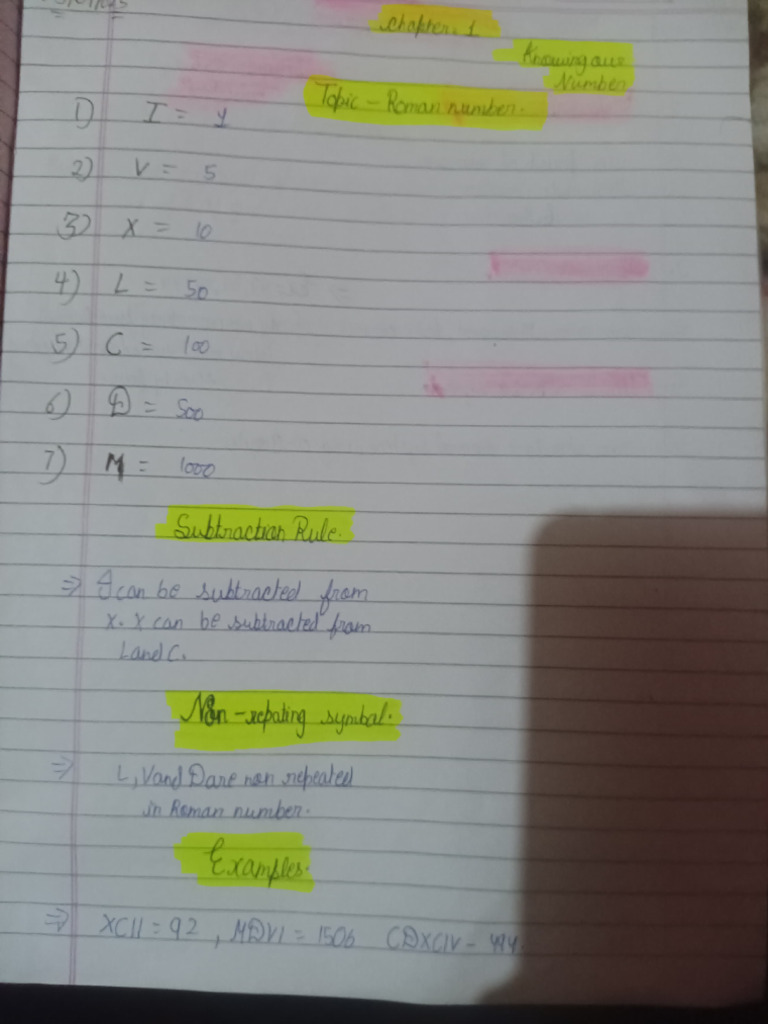 Chapter. 1
Knowing our
Number
Topic - Roman number.
1) I = 1
2) V = 5
3) X = 10
4) L = 50
5) C = 100
6) D = 500
7) M = 1000
Subtraction Rule.
⇒ I can be subtracted from
X. X can be subtracted from
L and C.
Non-repating symbal.
⇒ L, V and D are non repeated
in Roman number.
Examples.
⇒ XCII = 92 , MDVI = 1506 CDXCIV - 494.